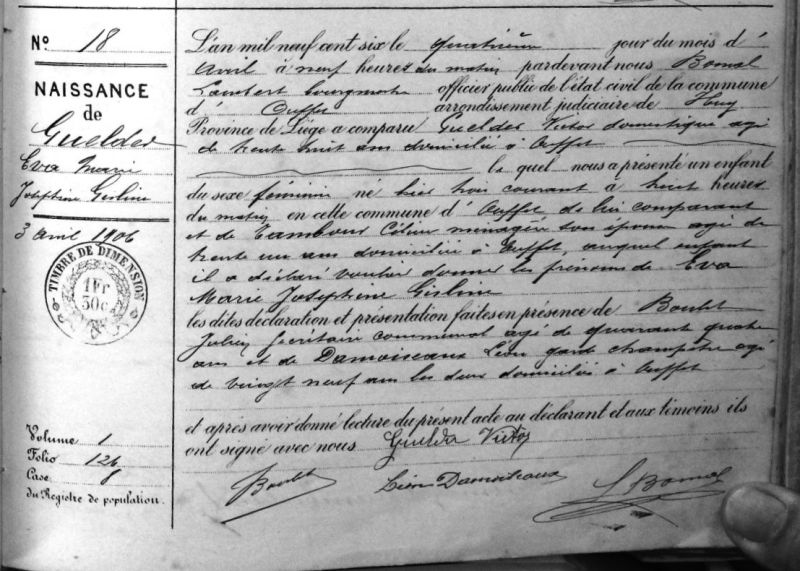 N° 18
NAISSANCE
de
Guelder
Eva Marie
Joséphine Gisline
3 avril 1906
TIMBRE DE DIMENSION
1 Fr
30c
Volume 1
Folio 124
Case 8
du Registre de population.
L'an mil neuf cent six le quatrième jour du mois d'
avril à neuf heures du matin pardevant nous Bomal
Lambert bourgmestre officier public de l'état civil de la commune
d' Ouffet arrondissement judiciaire de Huy
Province de Liége a comparu Guelder Victor domestique agé
de trente huit ans domicilié à Ouffet
le quel nous a présenté un enfant
du sexe féminin né hier trois courant à huit heures
du matin en cette commune d' Ouffet de lui comparant
et de Tambour Céline ménagère son épouse agée de
trente un ans domiciliée à Ouffet, auquel enfant
il a déclaré vouloir donner les prénoms de Eva
Marie Joséphine Gisline
les dites déclaration et présentation faites en présence de Boulet
Julien Secrétaire communal agé de quarante quatre
ans et de Damoiseaux Léon garde champêtre agé
de vingt neuf ans les deux domiciliés à Ouffet
et après avoir donné lecture du présent acte au déclarant et aux témoins ils
ont signé avec nous Guelder Victor
Boulet Léon Damoiseaux L Bomal